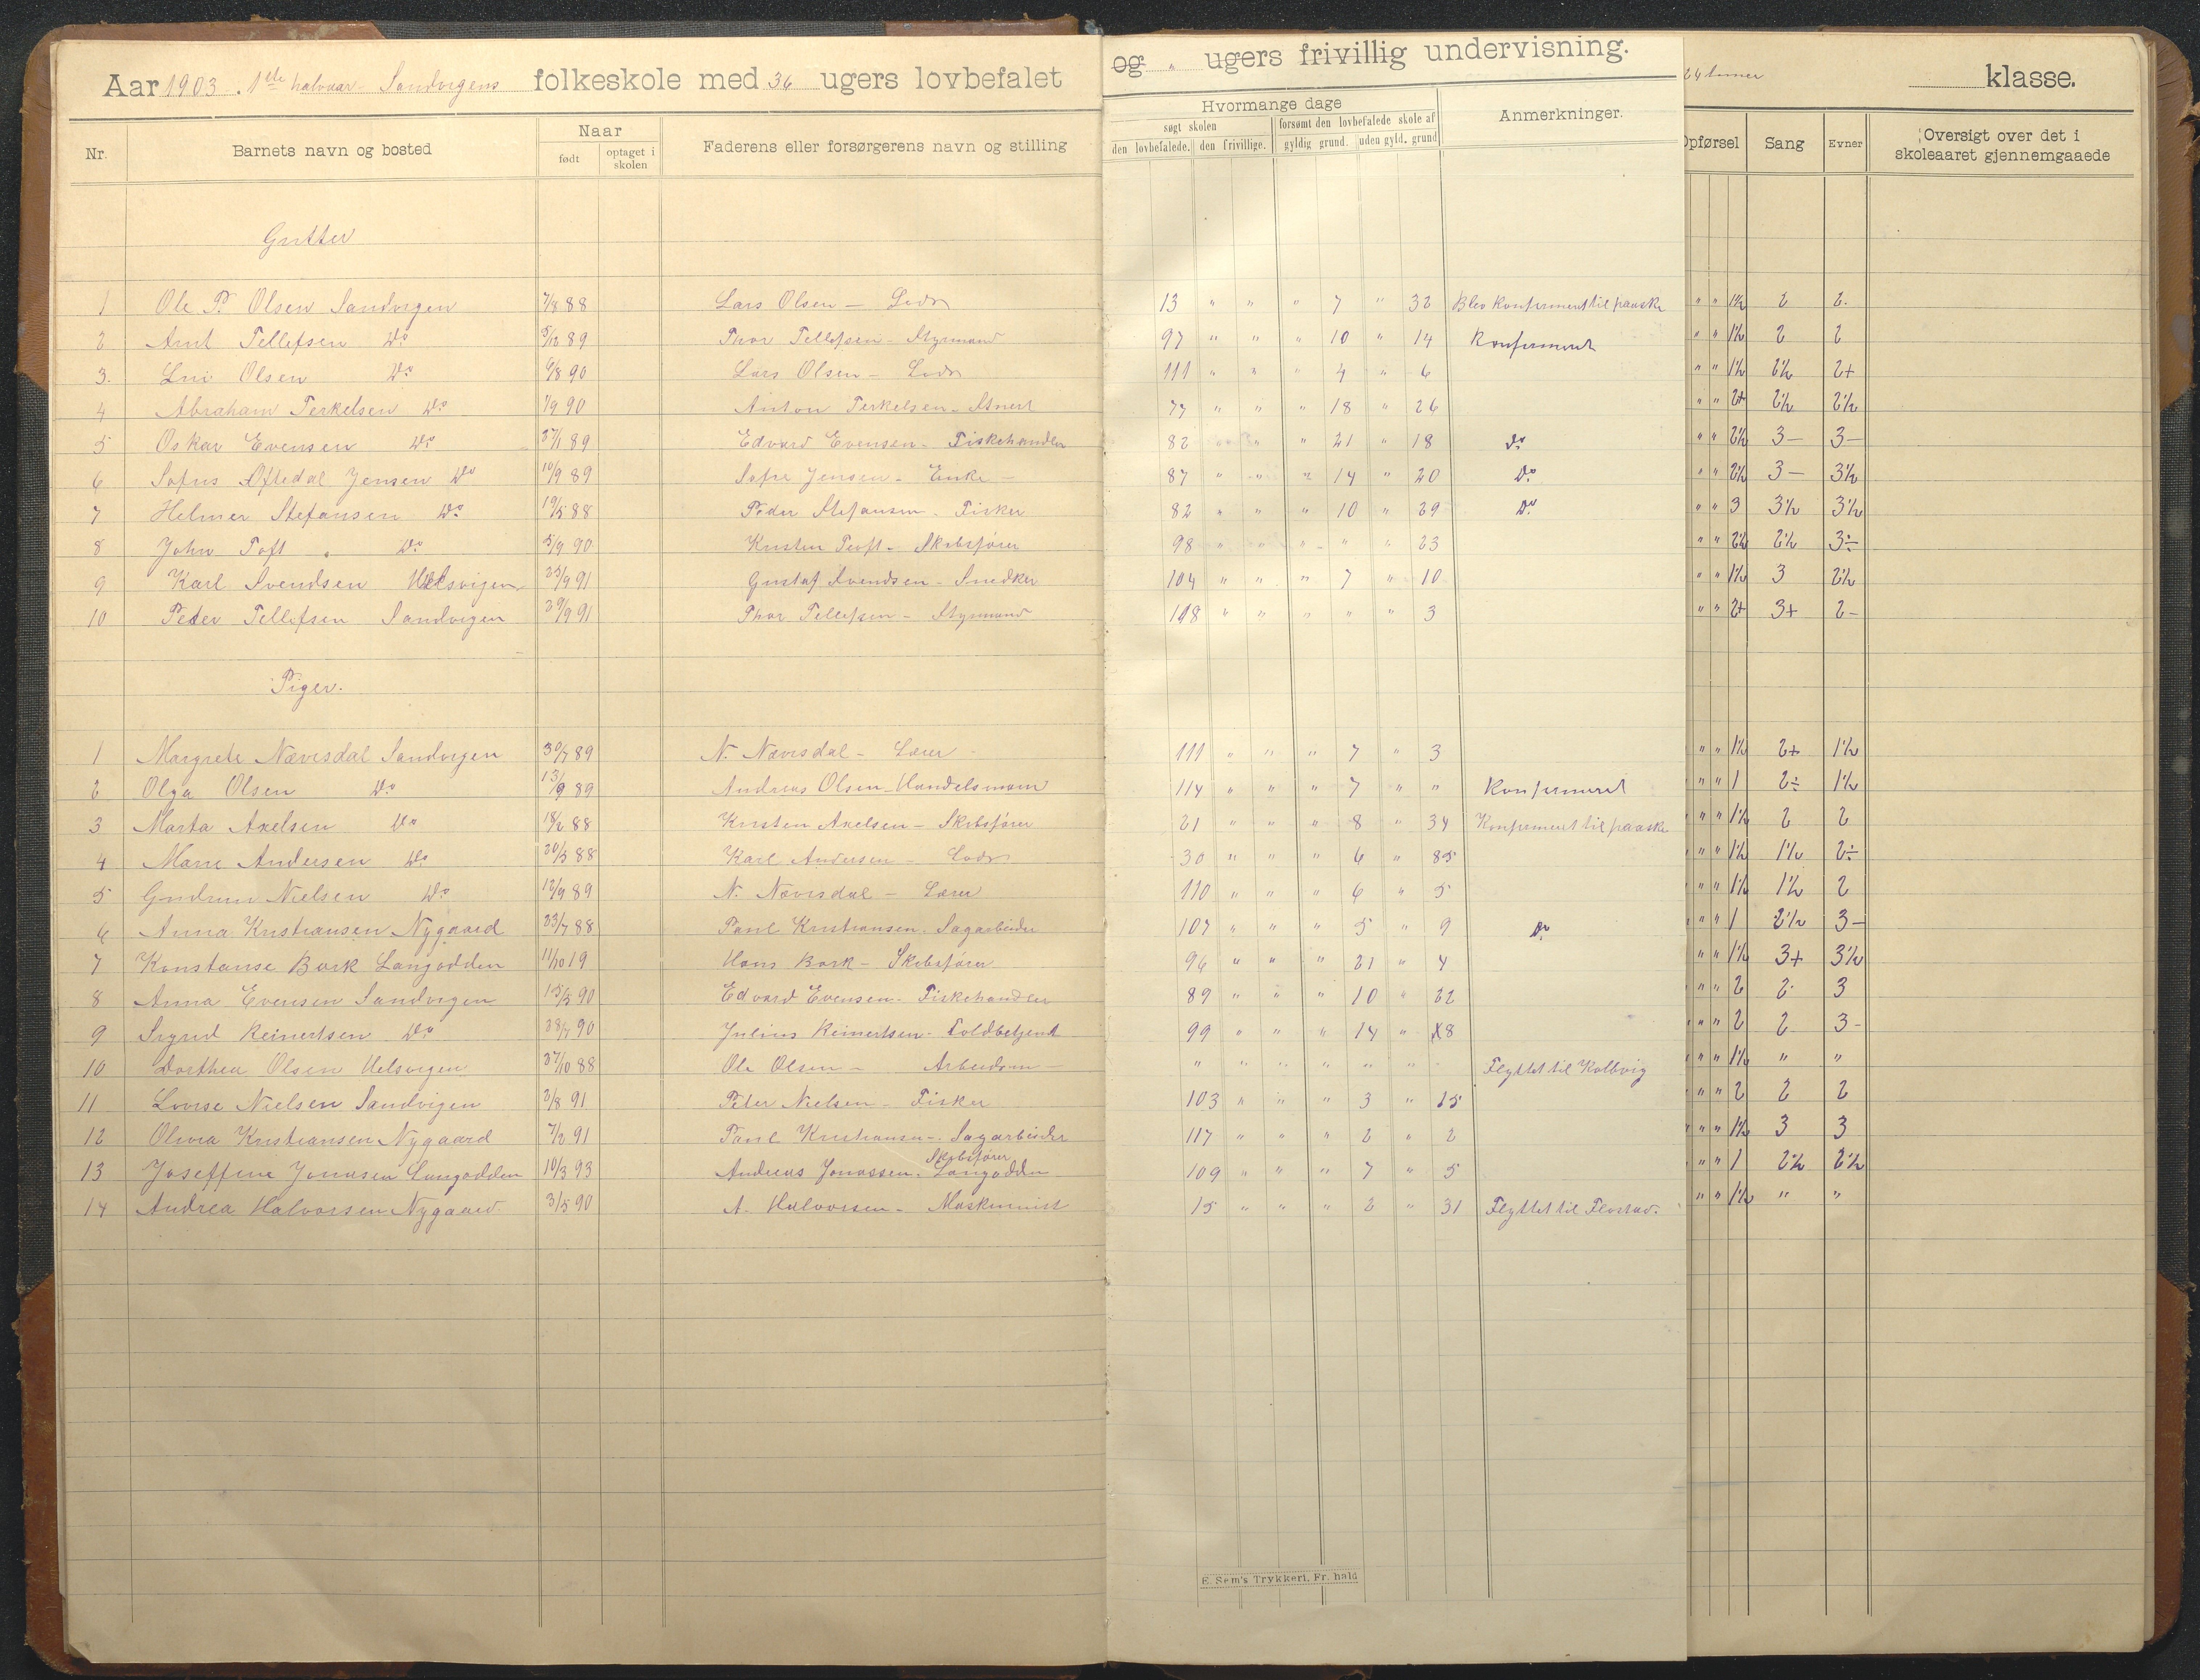 Aar 1903. 1ste halvaar Sandvigens folkeskole med 36 ugers lovbefalet og " ugers frivillig undervisning. 24 timer klasse.
Nr. Barnets navn og bosted Naar født optaget i skolen Faderens eller forsørgerens navn og stilling Hvormange dage søgt skolen den lovbefalede. den frivillige. forsømt den lovbefalede skole af gyldig grund. uden gyld. grund Anmerkninger. Opførsel Sang Evner Oversigt over det i skoleaaret gjennemgaaede
Gutter
1 Ole P. Olsen Sandvigen 7/8 88 Lars Olsen — Lods 13 " " " 7 " 32 Blev konfirmeret til paaske " " 1½ 2 2.
2 Arnt Tellefsen Do 5/12 89 Thor Tellefsen - Styrmand 97 " " " 10 " 14 Konfirmeret " " 1½ 2 2
3. Olsen Do 6/8 90 Lars Olsen — Lods 111 " " " 4 " 6 " " 1½ 2½ 2+
4 Abraham Terkelsen Do 1/9 90 Anton Terkelsen - 77 " " " 18 " 26 " " 2+ 2½ 2½
5 Oskar Evensen Do 27/1 89 Edvard Evensen - Fiskehandler 82 " " " 21 " 18 Do " " 2½ 3— 3—
6 Sofus Oftedal Jensen Do 10/9 89 Sofie Jensen - Enke — 87 " " " 14 " 20 Do " " 2½ 3— 3½
7 Helmer Stefansen Do 19/5 88 Peder Stefansen - Fisker 82 " " " 10 " 29 Do " " 3 3½ 3½
8 John Toft " Do 5/9 90 Kristen Toft - Skibsfører 98 " " " " " 23 " " 2½ 2½ 3÷
9 Karl Svendsen Uelsvigen 25/9 91 Gustaf Svendsen - Snedker 104 " " " 7 " 10 " " 1½ 3 2½
10 Peder Tellefsen Sandvigen 29/9 91 Thor Tellefsen - Styrmand 118 " " " " " 3 " " 2+ 3+ 2—
Piger.
1 Margrete Nævisdal Sandvigen 30/7 89 N. Nævisdal — Lærer 111 " " " 7 " 3 " " 1½ 2+ 1½
2 Olga Olsen Do 13/9 89 Andreas Olsen - Handelsmann 114 " " " 7 " " Konfirmeret " " 1 2÷ 1½
3 Marta Axelsen Do 18/2 88 Kristen Axelsen — Skibsfører 21 " " " 8 " 34 Konfirmeret til paaske " " 1½ 2 2
4 Marie Andersen Do 20/5 88 Karl Andersen — Lods 30 " " " 6 " 85 " " 1½ 1½ 2÷
5 Gudrun Nielsen Do 12/9 89 N. Nævisdal — Lærer 110 " " " 6 " 5 " " 1½ 1½ 2
6 Anna Kristiansen Nygaard 23/7 88 Paul Kristiansen. Sagarbeider 107 " " " 5 " 9 Do " " 1 2½ 3—
7 Konstanse Bork Langodden 11/10 19 Hans Bork — Skibsfører 96 " " " 21 " 4 " " 1½ 3+ 3½
8 Anna Evensen Sandvigen 15/5 90 Edvard Evensen - Fiskehandler 89 " " " 10 " 22 " " 2 2. 3
9 Sigrid Reinertsen Do 28/7 90 Julius Reinertsen - Toldbetjent 99 " " " 14 " 18 " " 2 2 3-
10 Dorthea Olsen Uelsvigen 27/10 88 Ole Olsen — Arbeidsm — " " " " " " " Flyttet til Kolbvig " " 1½ " "
11 Lovise Nielsen Sandvigen 2/8 91 Peter Nielsen - Fisker 103 " " " 3 " 15 " " 2 2 2
12 Olivia Kristiansen Nygaard 7/2 91 Paul Kristiansen - Sagarbeider 117 " " " 2 " 2 " " 1½ 3 3
13 Joseffine Jonasen Langodden 10/3 93 Andreas Jonassen. Skibsfører Langodden 109 " " " 7 " 5 " " 1 2½ 2½
14 Andrea Halvorsen Nygaard 3/5 90 A. Halvorsen - Maskinist 15 " " " 2 " 31 Flyttet til Flostad. " " 1½ " "
E. Sem's Trykkeri, Fr. hald